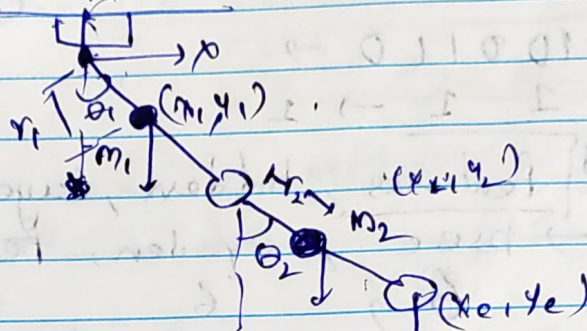 x
θ₁
(x₁, y₁)
r₁
m₁
r₂
(x₂, y₂)
m₂
θ₂
(xe, ye)